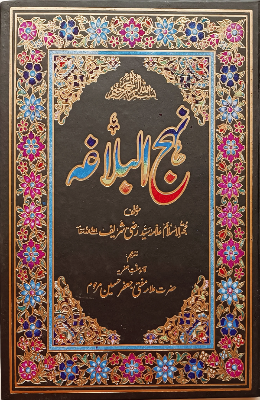 بسم اللہ الرحمن الرحیم
نہج البلاغہ
مؤلف
حجۃ الاسلام علامہ سید رضی شریف
مترجم
حضرت علامہ مفتی جعفر حسین مرحوم